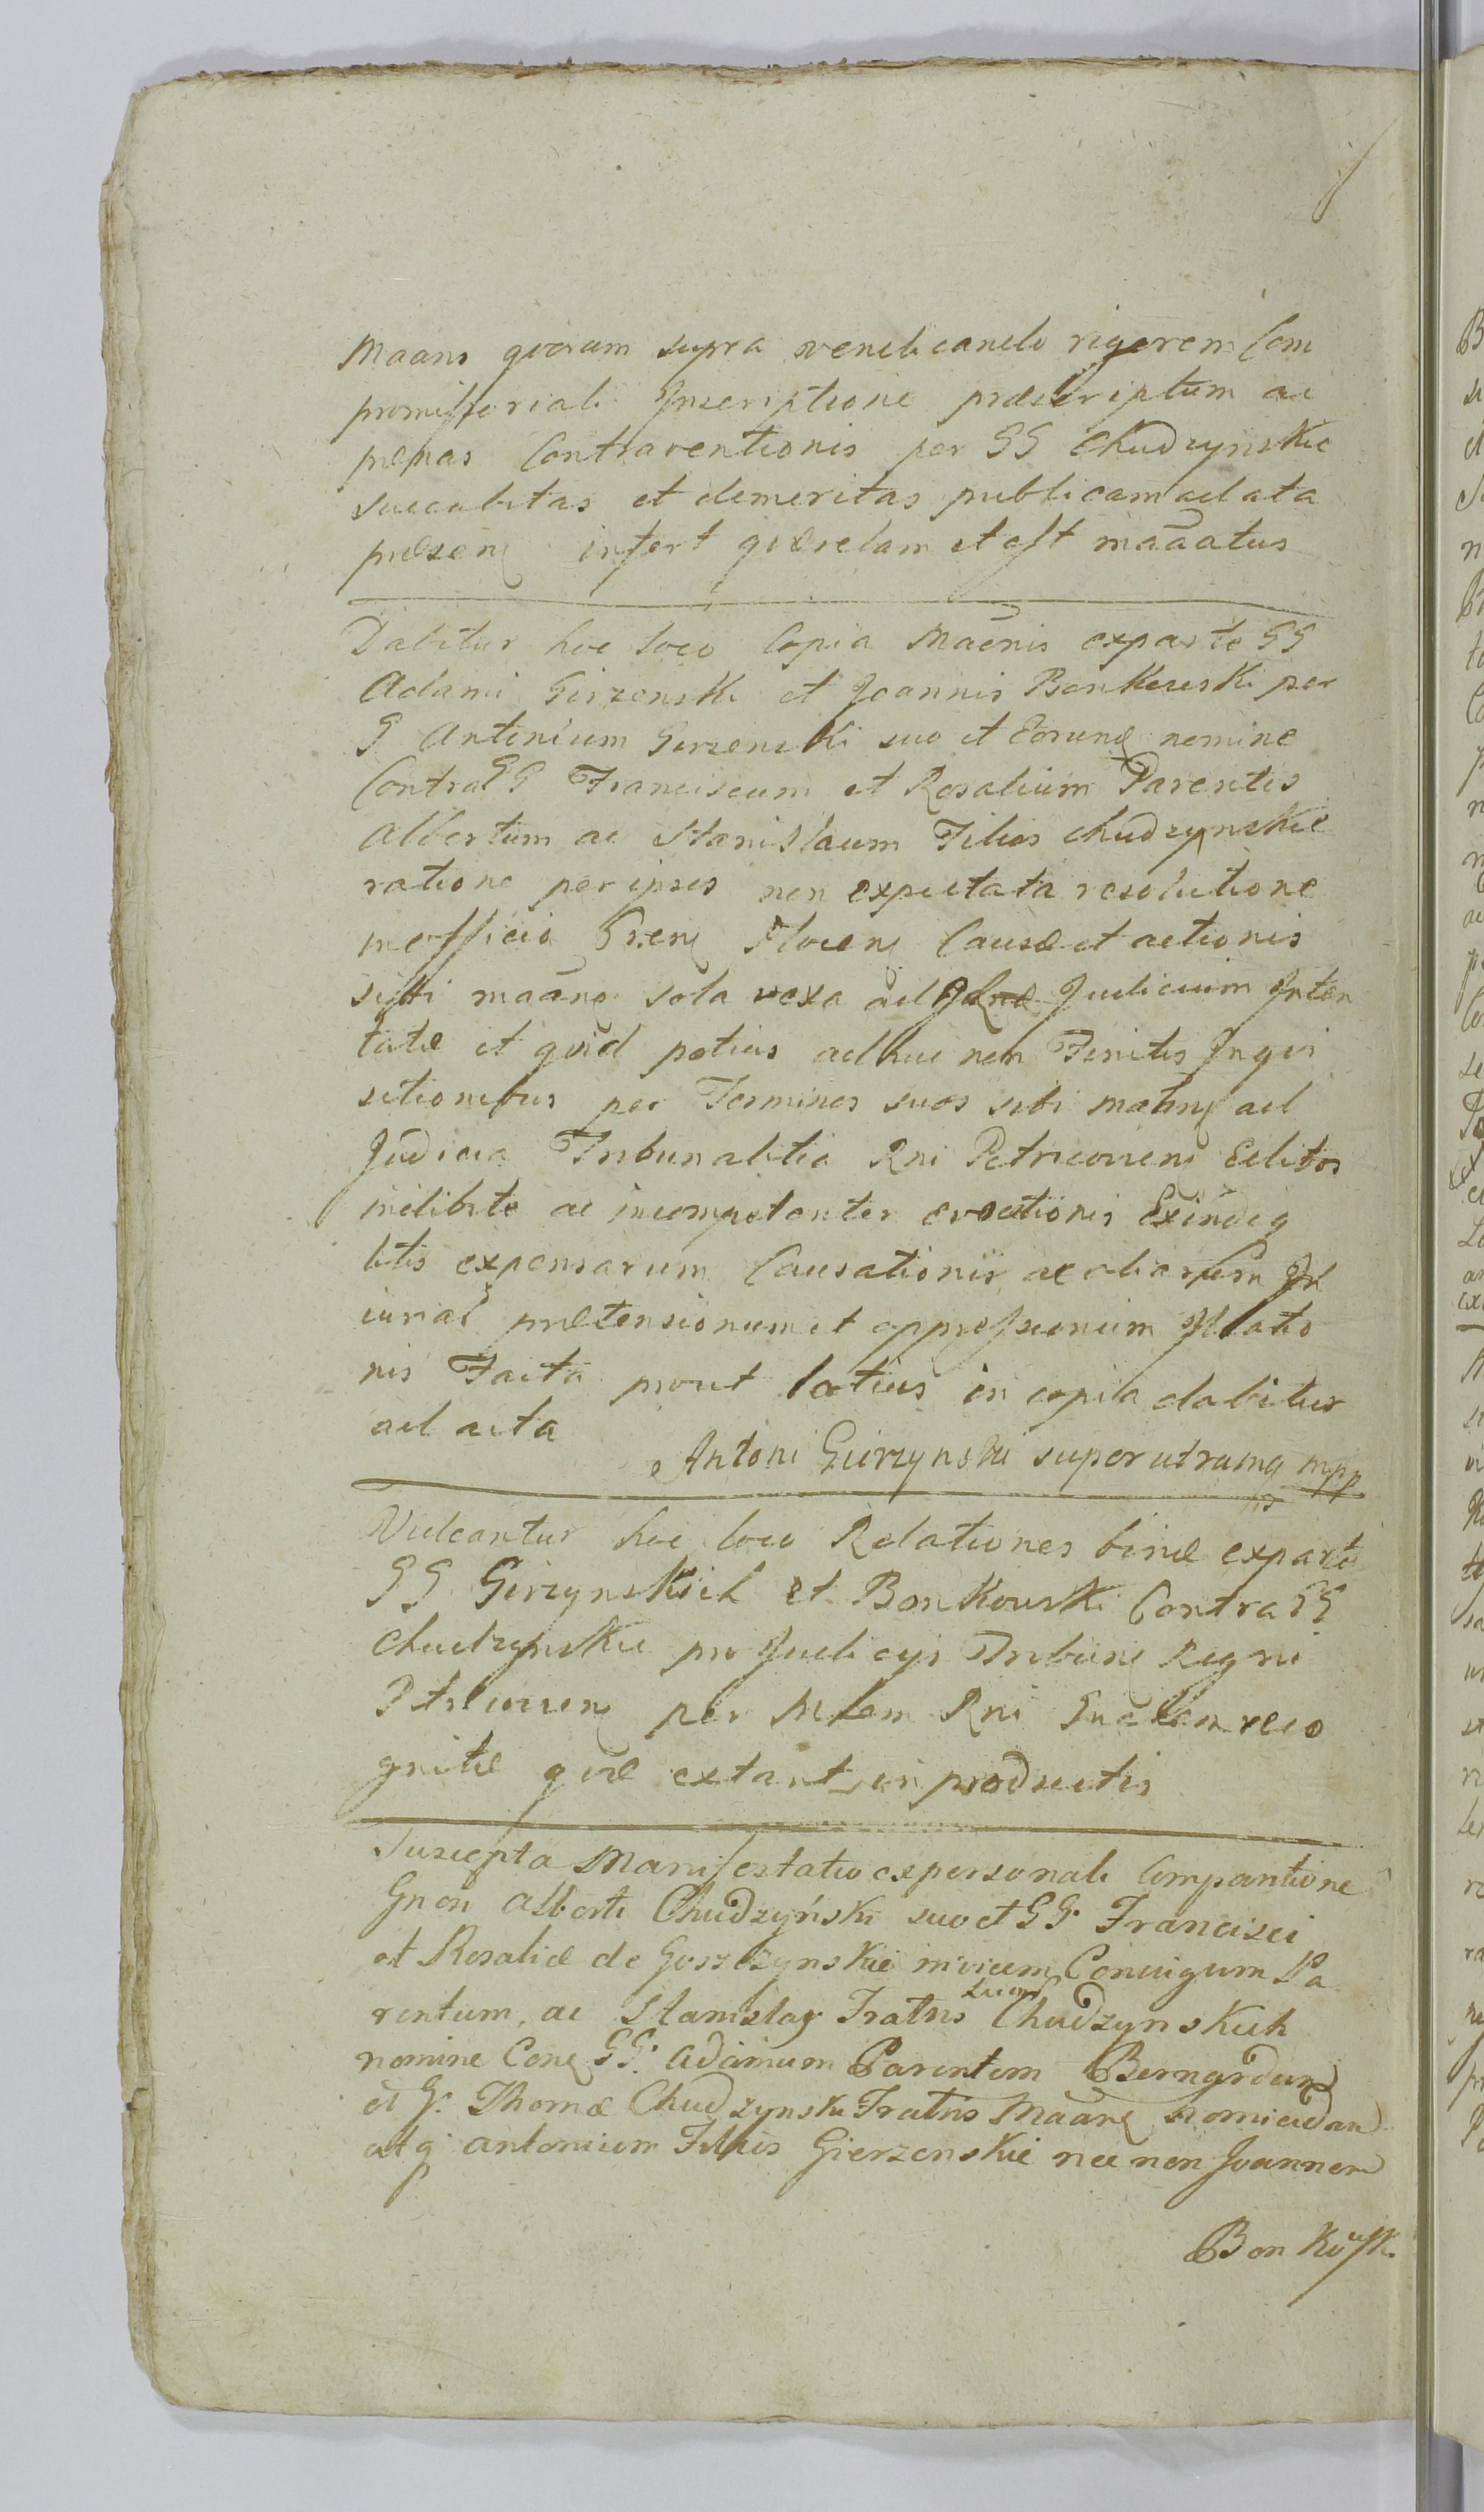 Maans quorum supra vendicando rigorem Com
promissoriali Inscriptione præscriptum ac
pænas Contraventionis per GG Chudzynskie
succubitas et demeritas publicam ad acta
præsenq infert quærelam et est maãatus
Dabitur hoc loco Copia Maõnis ex parte GG
Adami Girzenski et Joannis Bonkowski per
G Antonium Gerzenski suo et Eorunq nomine
Contra GG Franciscum et Rosalium Parentes
Albertum ac Stanislaum Filios Chudzynskie
ratione per ipsos non expectata resolutione
inofficio Causæ et actionis
sibi maãnq sola vexa ad Judicium Inten
tatæ et quid potius adhuc non Finitis Inqui
sitionibus per Terminos suos sibi ad
Judicia Tribunalitia Rni Petricoviens Editos
indebite ac incompetenter evocationis Exindeq
litis expensarum Causationis ac aliarum In
iuriar prætensionum et oppressionum Illatio
nis Facta prout latius in copia dabitur
ad acta
Antoni Gierzynski super utramq mpp
Videantur hoc loco Relationes binæ ex parte
GG Girzynskich et Bonkowski Contra GG
Chudzynskie pro Judicijs Tribunq Regni
Petricovienq per Mlem Rni Gnalem reco
gnitæ quæ extant in productis
Suscepta Manifestatio ex personali Compantione
Gnon Alberti Chudzyński suo et GG. Francisci
et Rosaliæ de Goszczynskie invicem Conjugum Pa
rentum, ac Stanislaj Fratris suor Chudzynskich
nomine Conq GG. Adamum Parentem Bernardum
et G. Thomæ Chudzynski Fratris Maanq nomine dan
atq Antonium Filios Gierzenskie nec non Joannem
Bonkowsk.